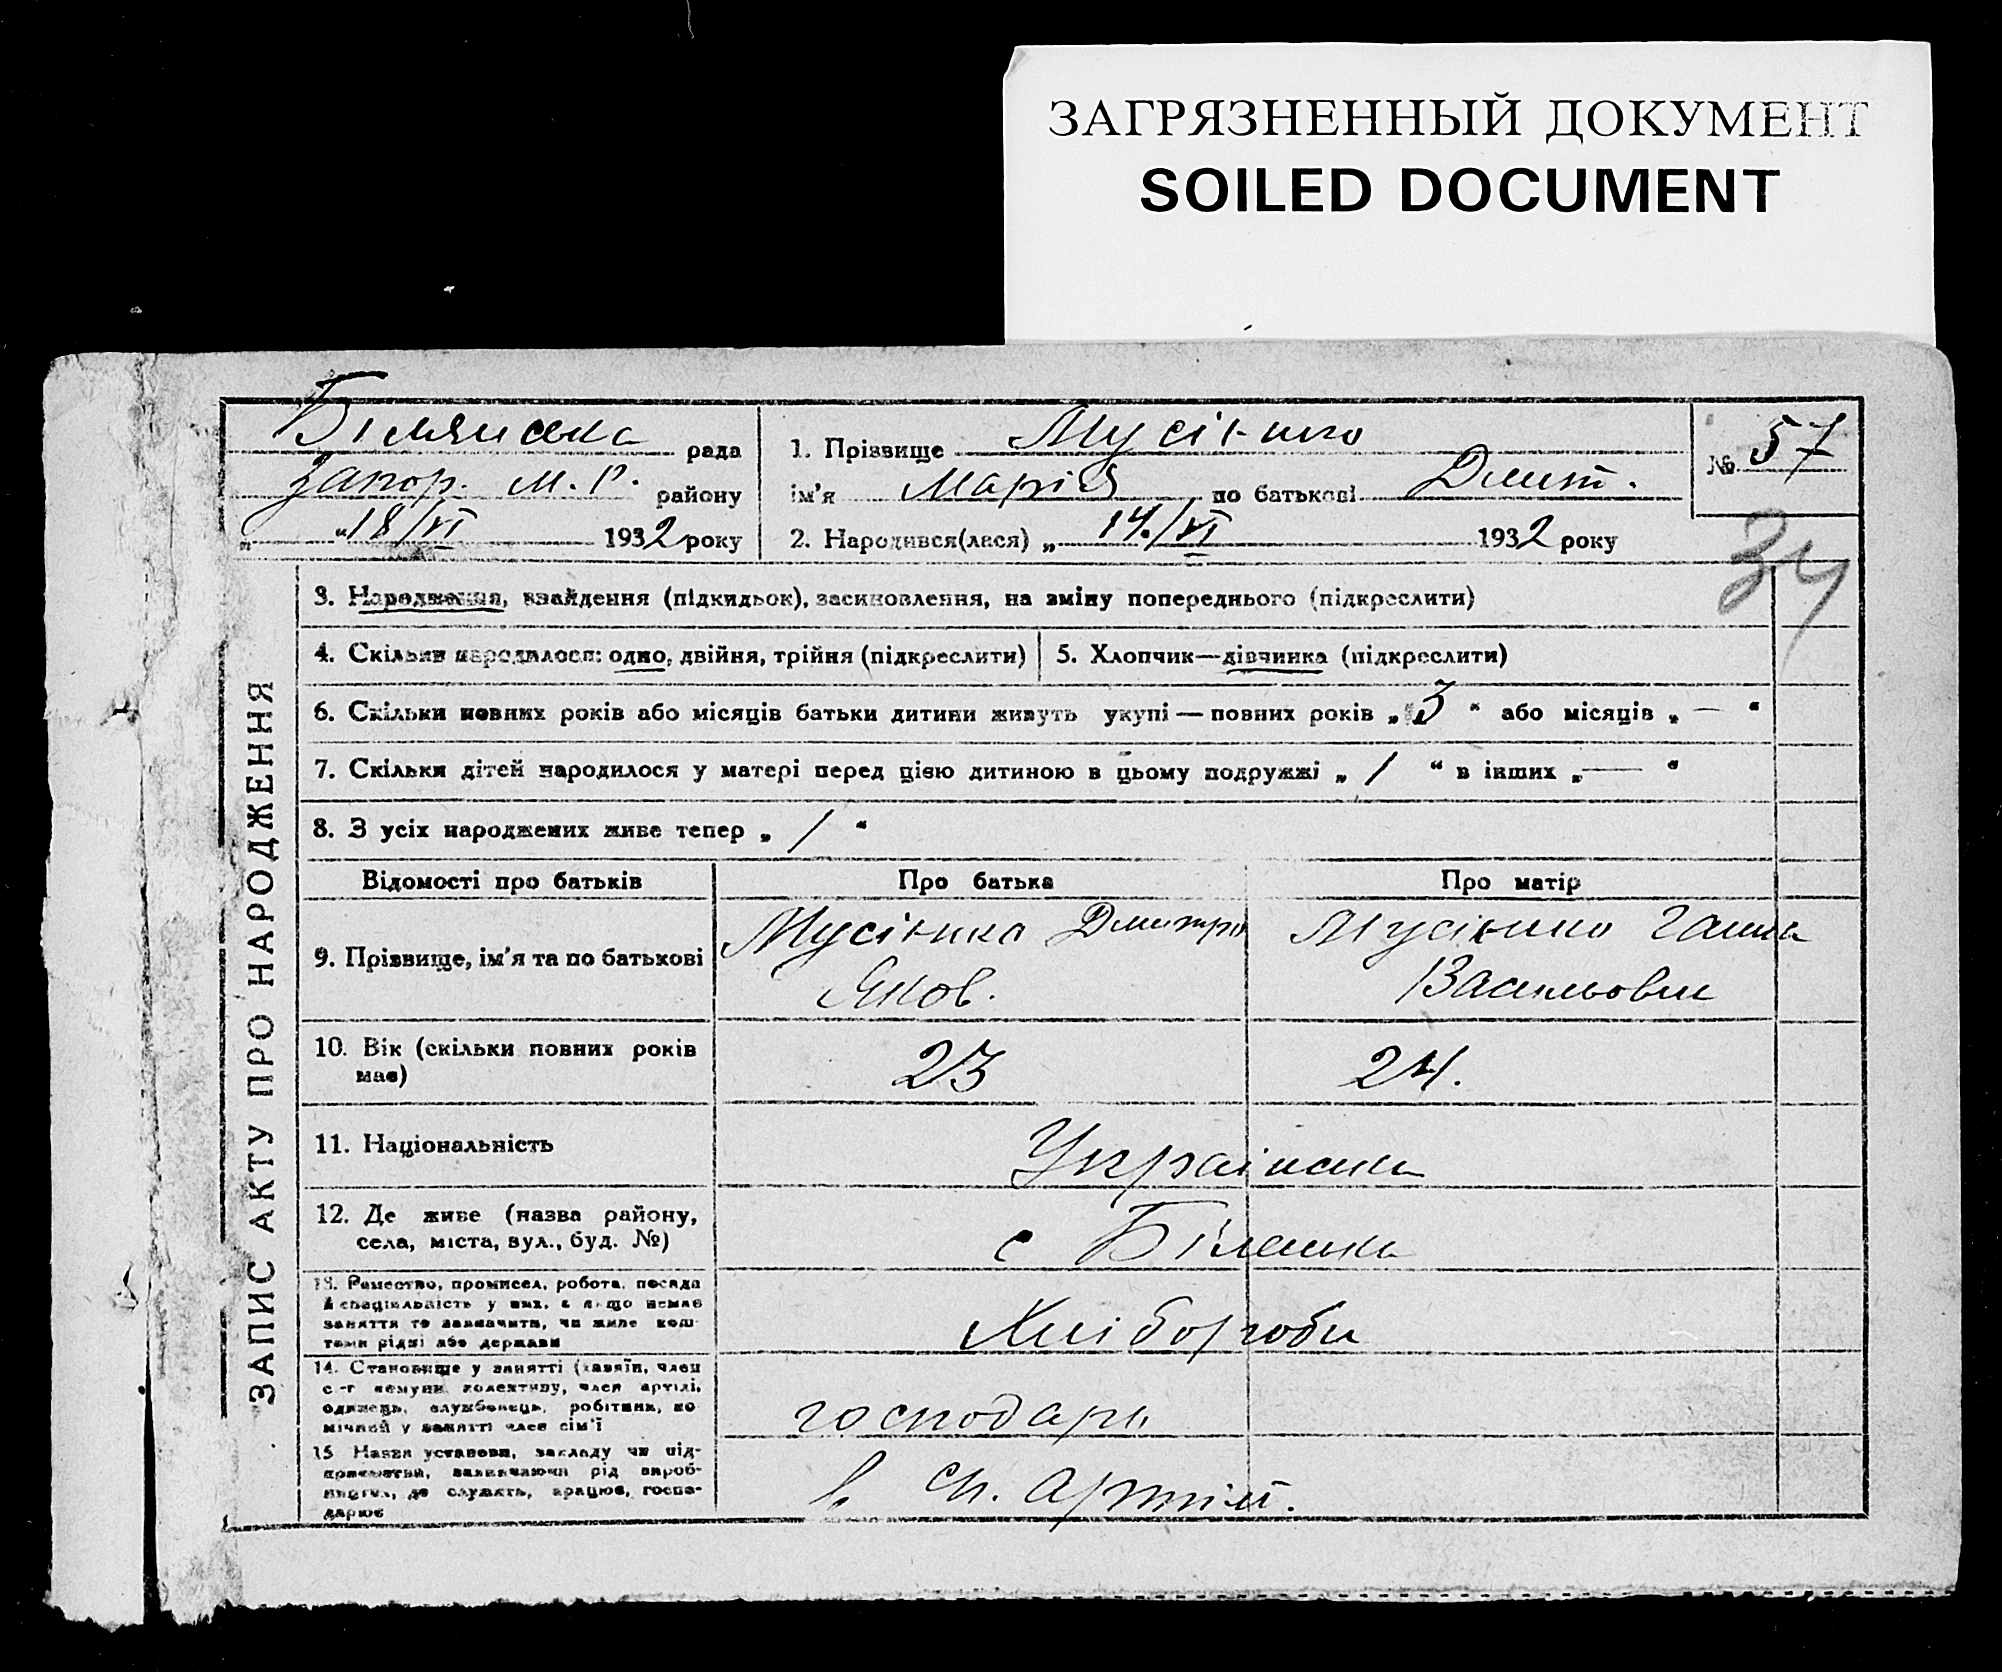 ЗАГРЯЗНЕННЫЙ ДОКУМЕНТ
SOILED DOCUMENT
Білянська рада
Запор. М.Р. району
„ “ 18/VI 1932 року
1. Прізвище Мусієнко
ім'я Марія по батькові Дмит.
2. Народився(лася) „ 14./VI 1932 року
№ 57
34
ЗАПИС АКТУ ПРО НАРОДЖЕННЯ
3. Народження, знайдення (підкидьок), засиновлення, на зміну попереднього (підкреслити)
4. Скільки народилося: одно, двійня, трійня (підкреслити)
5. Хлопчик—дівчинка (підкреслити)
6. Скільки повних років або місяців батьки дитини живуть укупі — повних років „ 3 “ або місяців „ — “
7. Скільки дітей народилося у матері перед цією дитиною в цьому подружжі „ 1 “ в інших „ — “
8. З усіх народжених живе тепер „ 1 “
Відомості про батьків
Про батька
Про матір
9. Прізвище, ім'я та по батькові
Мусієнко Дмитро
Яков.
Мусієнко Ганна
Васильовн
10. Вік (скільки повних років
має)
23
24.
11. Національність
Українська
12. Де живе (назва району,
села, міста, вул., буд. №)
с Біленька
13. Ремество, промисел, робота, посада
й спеціяльність у них, а якщо немає
заняття то зазначити, чи живе кош-
тами рідні або держави
Хлібороби
14. Становище у занятті (хазяїн, член
с.-г комуни колективу, член артілі,
одинець, службовець, робітник, по-
мічний у занятті член сім'ї
господарь
15 Назва установи, закладу чи під-
приємства, зазначаючи рід вироб-
ництва, де служить, працює, госпо-
дарює
в артілі.